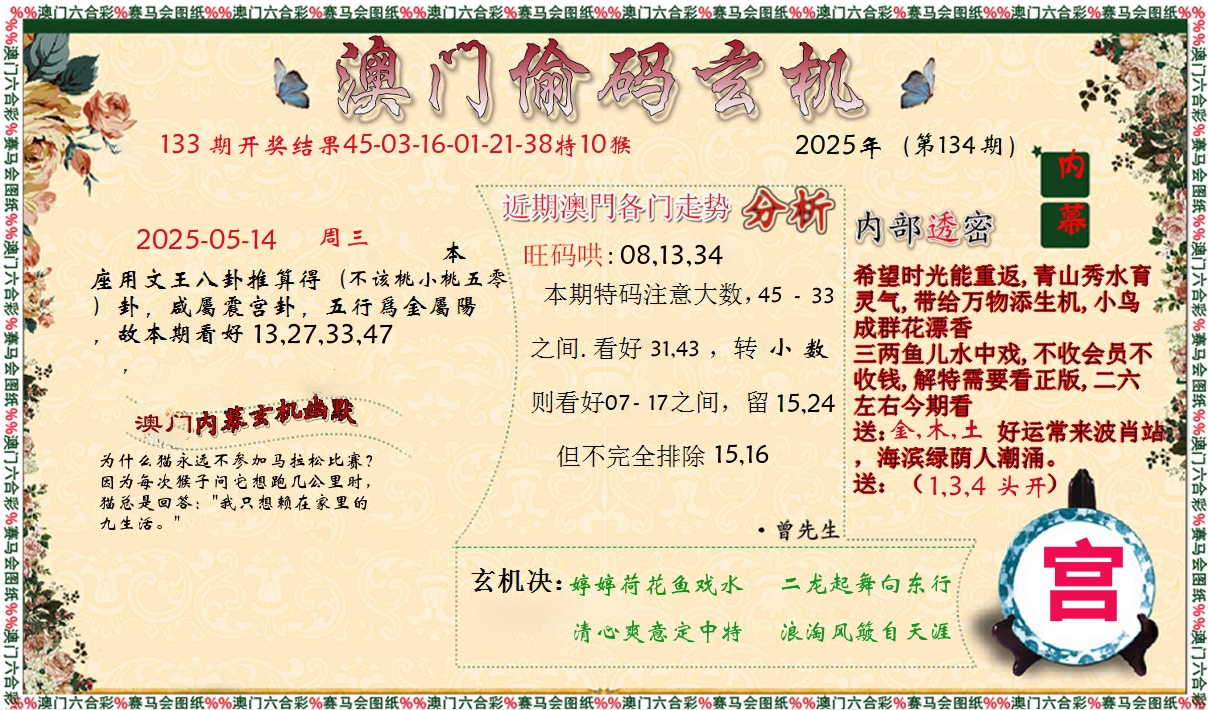 %%澳门六合彩%赛马会图纸%%澳门六合彩%赛马会图纸%%澳门六合彩%赛马会图纸%%澳门六合彩%赛马会图纸%%澳门六合彩%赛马会图纸%%澳门六合彩%赛马会图纸%%
澳门偷码玄机
133 期开奖结果45-03-16-01-21-38特10猴
2025年 （第134期）
内
幕
2025-05-14 周三
本
座用文王八卦推算得（不该桃小桃五零
）卦，咸屬震宫卦，五行爲金屬陽
，故本期看好 13,27,33,47
，
澳门内幕玄机幽默
为什么猫永远不参加马拉松比赛？
因为每次猴子问它想跑几公里时，
猫总是回答："我只想赖在家里的
九生活。"
近期澳門各门走势 分析
旺码哄: 08,13,34
本期特码注意大数, 45 - 33
之间. 看好 31,43 ，转 小 数
则看好07- 17之间，留 15,24
但不完全排除 15,16
·曾先生
内部透密
希望时光能重返, 青山秀水育
灵气, 带给万物添生机, 小鸟
成群花漂香
三两鱼儿水中戏, 不收会员不
收钱, 解特需要看正版, 二六
左右今期看
送: 金, 木, 土 好运常来波肖站
，海滨绿荫人潮涌。
送: （1,3,4 头开）
宫
玄机决: 婷婷荷花鱼戏水 二龙起舞向东行
清心爽意定中特 浪淘风簸自天涯
%%澳门六合彩%赛马会图纸%%澳门六合彩%赛马会图纸%%澳门六合彩%赛马会图纸%%澳门六合彩%赛马会图纸%%澳门六合彩%赛马会图纸%%澳门六合彩%赛马会图纸%%